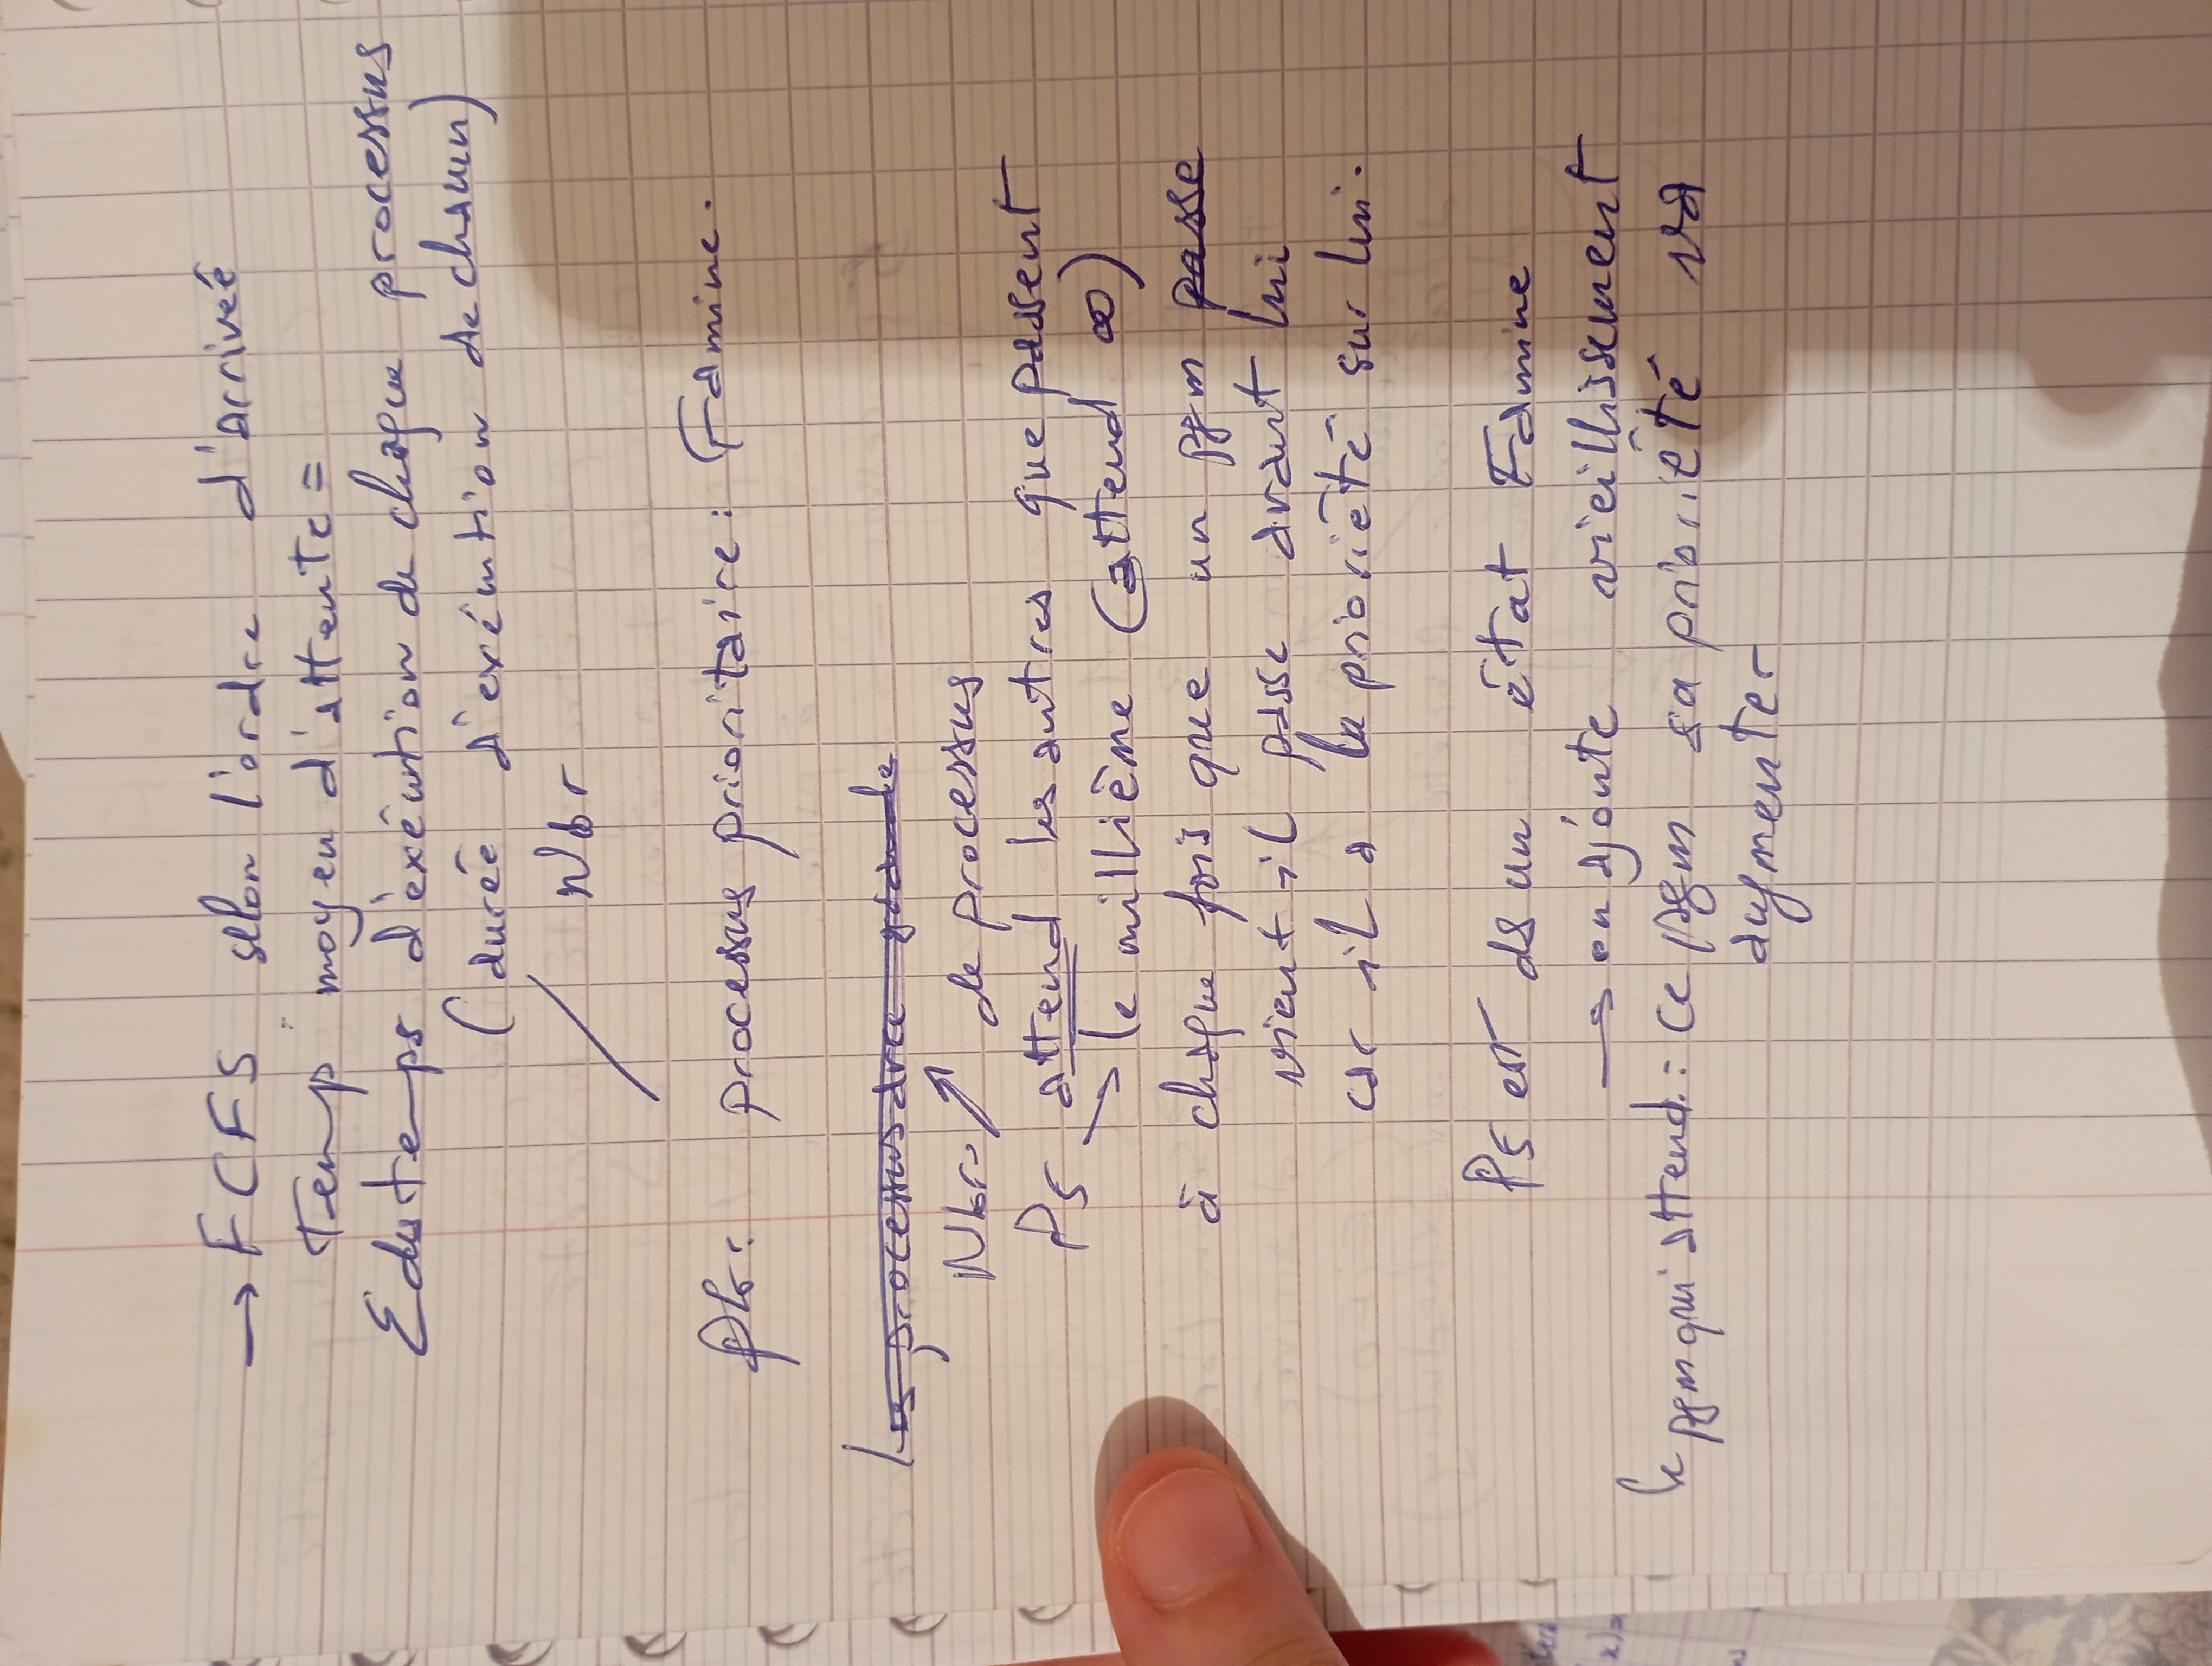 → FCFS selon l'ordre d'arriveé
Temp moyen d'attente =
Σ des temps d'éxécution de chaque processus
(dureé d'exécution de chacun)
/ Nbr
Pb : processus prioritaire : Famine.
les processus avec grande
Nbr ↗ de processus
P5 attend les autres que passent
↘ le millième (attend ∞)
à chaque fois que un pgm passe
vient il passe avant lui
car il a la prioriété sur lui.
P5 est ds un état Famine
→ on ajoute vieillissement
le pgm qui attend : ce pgm sa prioriété va
augmenter